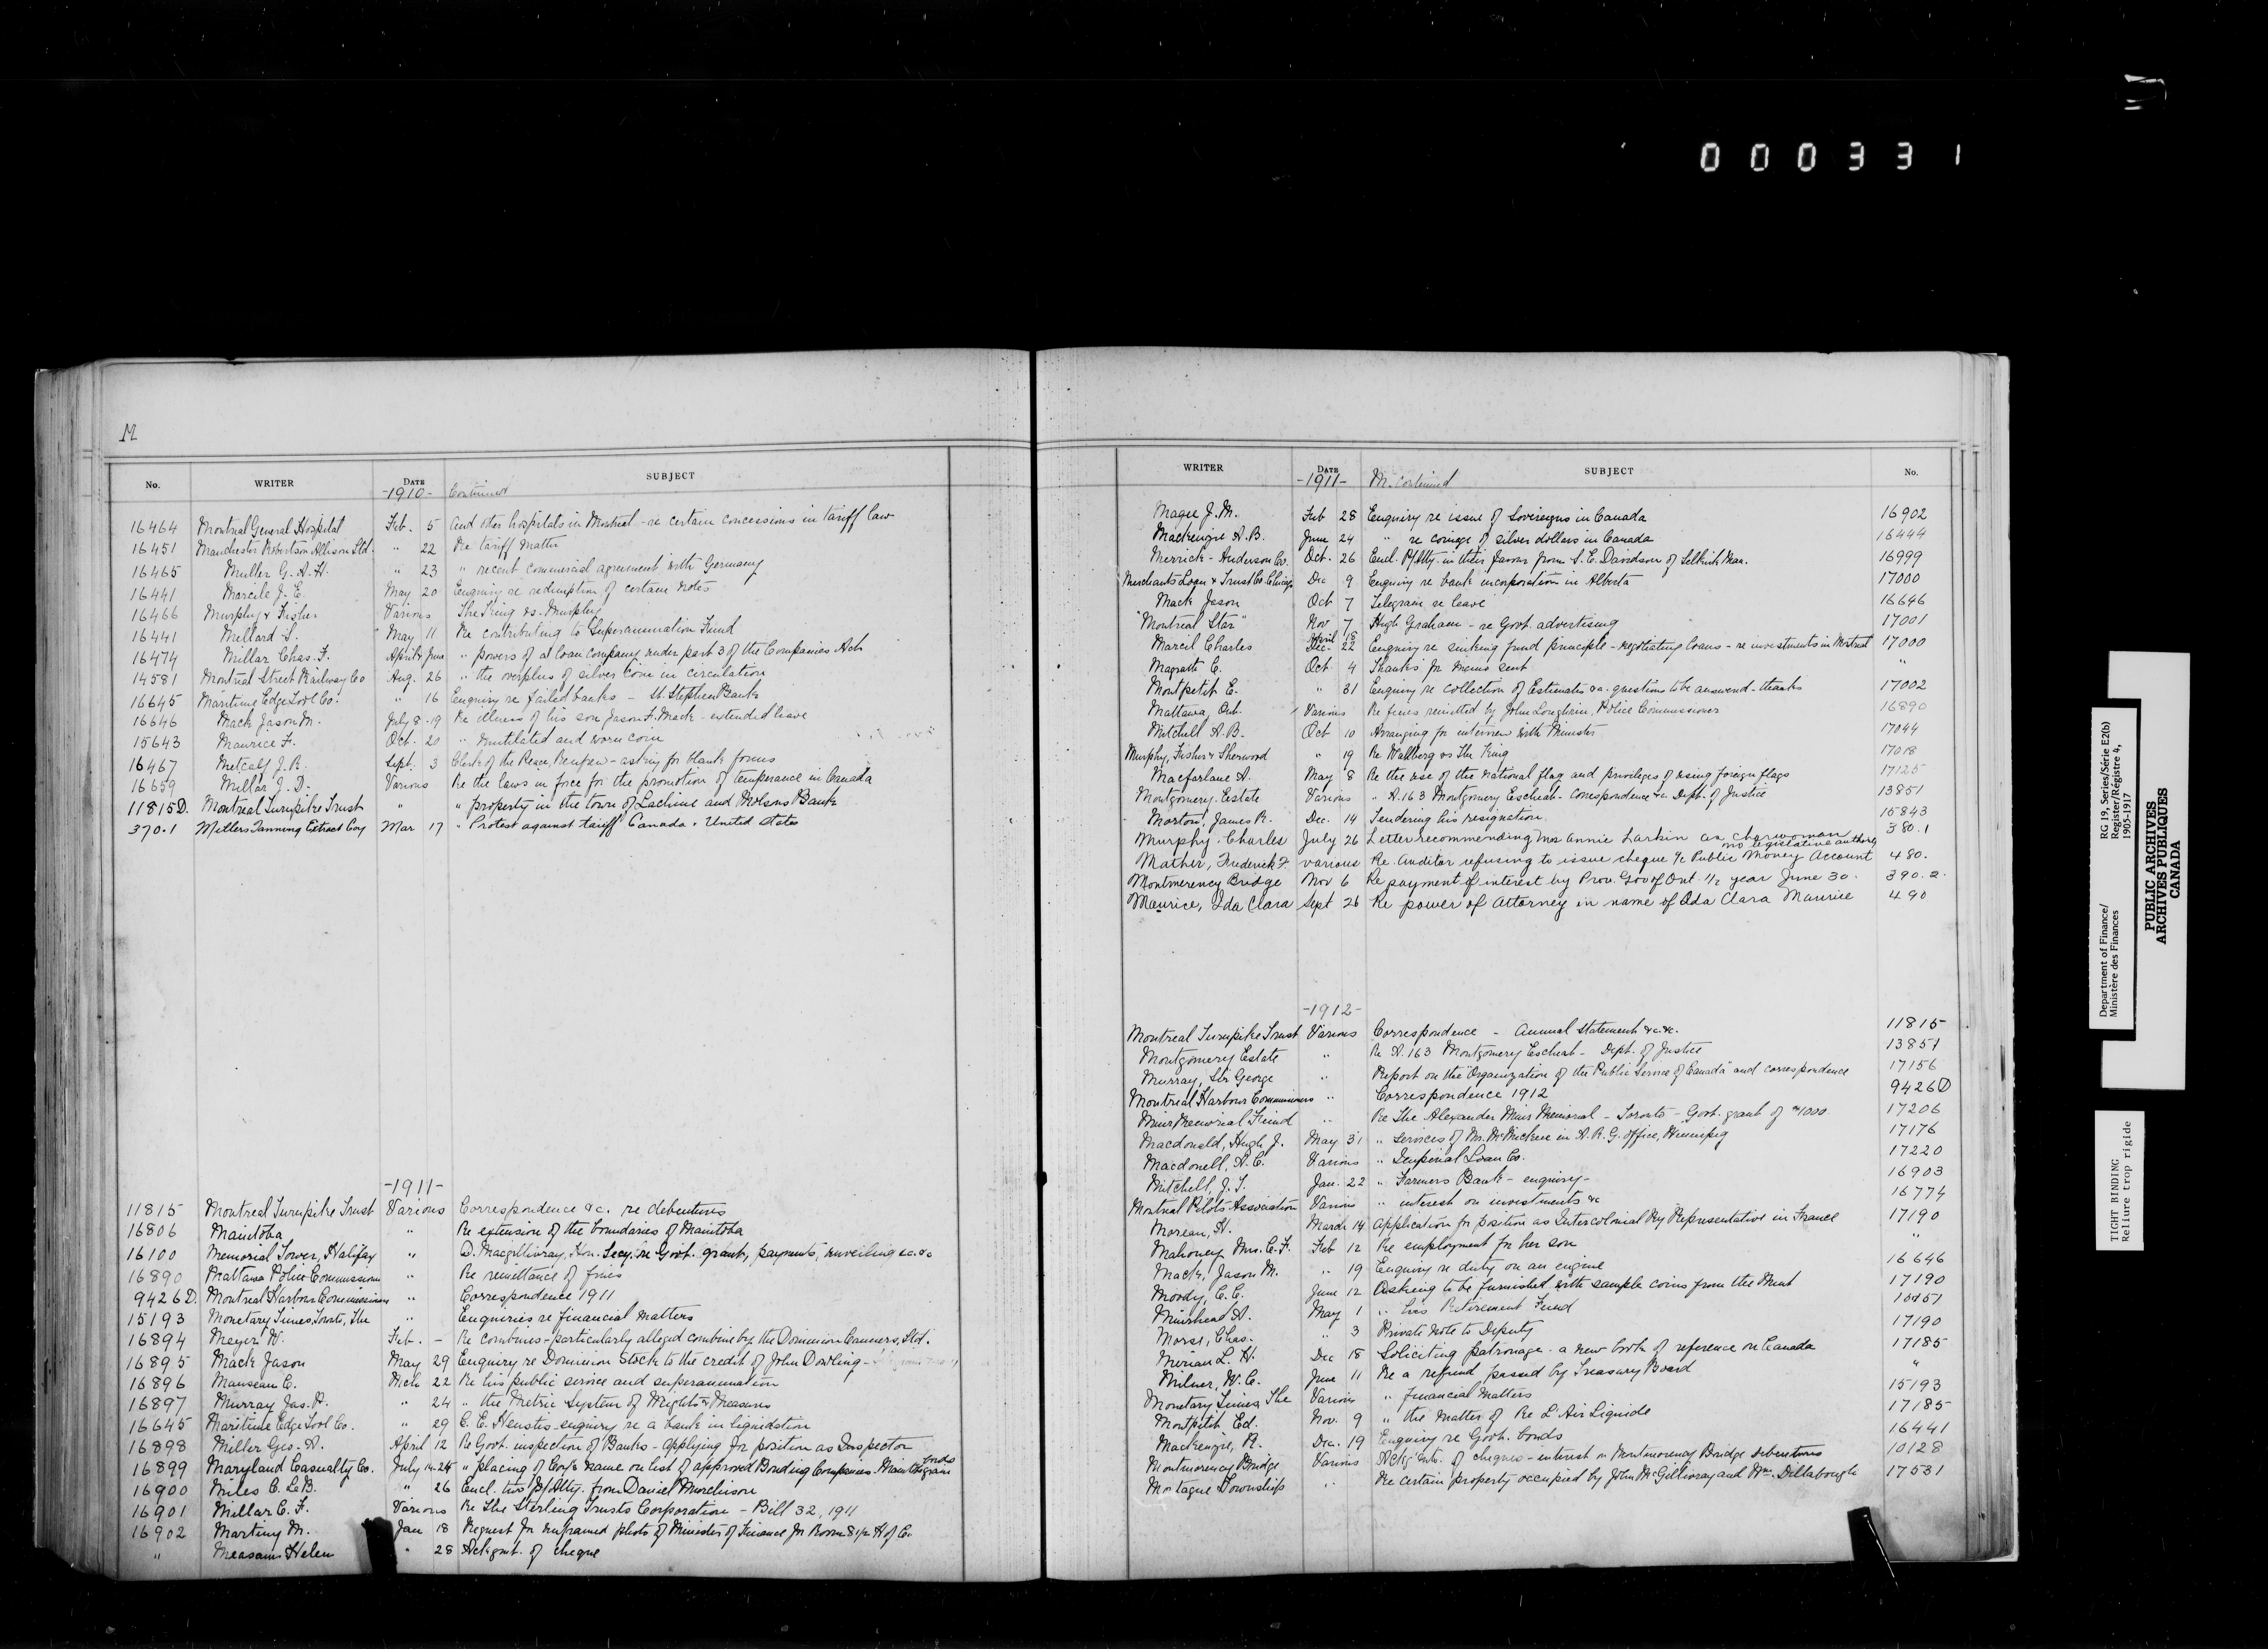 000331
M
No. WRITER DATE SUBJECT
-1910- Continued
16464 Montreal General Hospital Feb. 5 and other hospitals in Montreal - re certain concessions in tariff law
16451 Manchester Robertson Allison Ltd. " 22 Re tariff matter
16465 Muller G. A. H. " 23 " recent commercial agreement with Germany
16441 Marcile J. E. May 20 Enquiry re redemption of certain notes
16466 Murphy & Fisher Various The King vs. Murphy
16441 Millard S. May 11 Re contributing to Superannuation Fund
16474 Millar Chas. F. April & June " powers of a loan company under part 3 of the Companies Act
14581 Montreal Street Railway Co Aug. 26 " the overplus of silver coin in circulation
16645 Maritime Edge Tool Co. " 16 Enquiry re failed banks - St. Stephen Bank
16646 Mack Jason M. July 8-19 Re illness of his son Jason F. Mack - extended leave
15643 Maurice F. Oct. 20 " mutilated and worn coin
16467 Metcalf J. R. Sept. 3 Clerk of the Peace Renfrew - asking for blank forms
16659 Millar J. D. Various Re the laws in force for the promotion of temperance in Canada
11815D. Montreal Turnpike Trust " " property in the town of Lachine and Molsons Bank
370.1 Millers Tanning Extract Coy Mar 17 " Protest against tariff Canada & United States
-1911-
11815 Montreal Turnpike Trust Various Correspondence &c. re debentures
16806 Manitoba " Re extension of the boundaries of Manitoba
16100 Memorial Tower, Halifax " D. Macgillivray, Hon. Secy. re Govt. grant, payments, unveiling &c. &c
16890 Mattawa Police Commissioner " Re remittance of fines
9426D. Montreal Harbour Commissioners " Correspondence 1911
15193 Monetary Times, Toronto, The " Enquiries re financial matters
16894 Meyer W. Feb. - Re combines - particularly alleged combine by the Dominion Canners, Ltd.
16895 Mack Jason May 29 Enquiry re Dominion Stock to the credit of John Dowling -
16896 Manseau C. Mch 22 Re his public service and superannuation
16897 Murray Jas. P. " 24 " the Metric System of Weights & Measures
16645 Maritime Edge Tool Co. " 29 C. E. Heustis enquiry re a bank in liquidation
16898 Miller Geo. A. April 12 Re Govt. inspection of Banks - applying for position as Inspector
16899 Maryland Casualty Co. July 14-24 " placing of Coy's name on list of approved Bonding Companies. bonds
16900 Miles C. LeB. " 26 Encl. his P/Atty. from Daniel Murchison
16901 Millar C. F. Various Re The Sterling Trusts Corporation - Bill 32, 1911
16902 Martiny M. Jan 18 Request for unframed photo of Minister of Finance for Room 8 1/2 H of C.
" Measam Helen " 28 Ackgmt. of cheque
WRITER DATE SUBJECT No.
-1911- M. continued
Magee J. M. Feb 28 Enquiry re issue of Sovereigns in Canada 16902
Mackenzie A. B. June 24 " re coinage of silver dollars in Canada 16444
Merrick - Anderson Co. Oct. 26 Encl. P/Atty. in their favour from S. E. Davidson of Selkirk Man. 16999
Merchants Loan & Trust Co. Chicago Dec 9 Enquiry re bank incorporation in Alberta 17000
Mack Jason Oct 7 Telegram re leave 16646
"Montreal Star" Nov 7 Hugh Graham - re Govt. advertising 17001
Marcil Charles April 18 Dec. 22 Enquiry re sinking fund principle - negotiating loans - re investments in Montreal 17000
Magrath C. Oct. 4 Thanks for memo sent "
Montpetit E. " 31 Enquiry re collection of Estimates &c. questions to be answered - thanks 17002
Mattawa, Ont. Various Re fines remitted by John Loughrin, Police Commissioner 16890
Mitchell A. B. Oct 10 Arranging for interview with Minister 17044
Murphy, Fisher & Sherwood " 19 Re Wallberg vs The King 17018
Macfarlane A. May 8 Re the use of the national flag and privileges of using foreign flags 17125
Montgomery Estate Various " A.163 Montgomery Escheat - Correspondence &c. Dept. of Justice 13851
Morton, James R. Dec. 14 Tendering his resignation 15843
Murphy. Charles July 26 Letter recommending Mrs Annie Larkin as charwoman 380.1
Mather, Frederick F. various Re. Auditor refusing to issue cheque 7/c Public Money Account no legislative authority 480.
Montmerency Bridge Nov 6 Re payment of interest by Prov. Gov of Ont. 1/2 year June 30. 390.2.
Maurice, Ida Clara Sept 26 Re power of Attorney in name of Ada Clara Maurice 490
-1912-
Montreal Turnpike Trust Various Correspondence - Annual Statement &c. &c. 11815
Montgomery Estate " Re A.163 Montgomery Escheat - Dept. of Justice 13851
Murray, Sir George " Report on the "Organization of the Public Service of Canada" and correspondence 17156
Montreal Harbour Commissioners " Correspondence 1912 9426D
Muir Memorial Fund " Re The Alexander Muir Memorial - Toronto - Govt. grant of $1000 17206
Macdonald, Hugh J. May 31 " Services of Mr. McMicken in A. R. G. office, Winnipeg 17176
Macdonell, A. C. Various " Imperial Loan Co. 17220
Mitchell, J. T. Jan. 22 " Farmers Bank - enquiry - 16903
Montreal Pilots Association Various " interest on investments &c 16774
Moreau, H. March 14 Application for position as Intercolonial Ry Representative in France 17190
Mahoney, Mrs. C. F. Feb 12 Re employment for her son "
Mack, Jason M. " 19 Enquiry re duty on an engine 16646
Moody, C. C. June 12 Asking to be furnished with sample coins from the Mint 17190
Muirhead A. May 1 " his Retirement Fund 10151
Morse, Chas. " 3 Private note to Deputy 17190
Merian L. H. Dec 18 Soliciting patronage - a new book of reference on Canada 17185
Milner, W. C. June 11 Re a refund passed by Treasury Board "
Monetary Times, The Various " financial matters 15193
Montpetit Ed. Nov. 9 " the matter of Re L'Air Liquide 17185
Mackenzie, R. Dec. 19 Enquiry re Govt. bonds 16441
Montmorency Bridge Various Ackg'mts. of cheques - interest on Montmorency Bridge debentures 10128
Montague Township " Re certain property occupied by John McGillivray and Wm. Dillabough 17531
Department of Finance/
Ministère des Finances
RG 19, Series/Série E2(b)
Register/Régistre 4,
1905-1917
PUBLIC ARCHIVES
ARCHIVES PUBLIQUES
CANADA
TIGHT BINDING
Reliure trop rigide